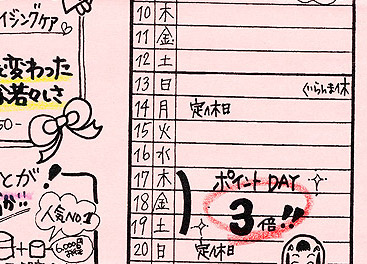 イジングケア♡
変わった
若々しさ
50-
とが!
が!!
人気No.1
6,000円
10 木
11 金
12 土
13 日 ぐらんま休
14 月 定休日
15 火
16 水
17 木 ポイントDAY
18 金 3倍!!
19 土
20 日 定休日